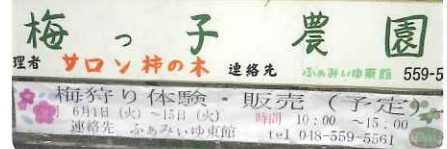 梅っ子農園
理者 サロン柿の木 連絡先 ふぁみいゆ東館 559-5
梅狩り体験・販売（予定）
6月1日（火）～15日（火） 時間 10：00 ～15：00
連絡先 ふぁみいゆ東館 tel 048-559-5561